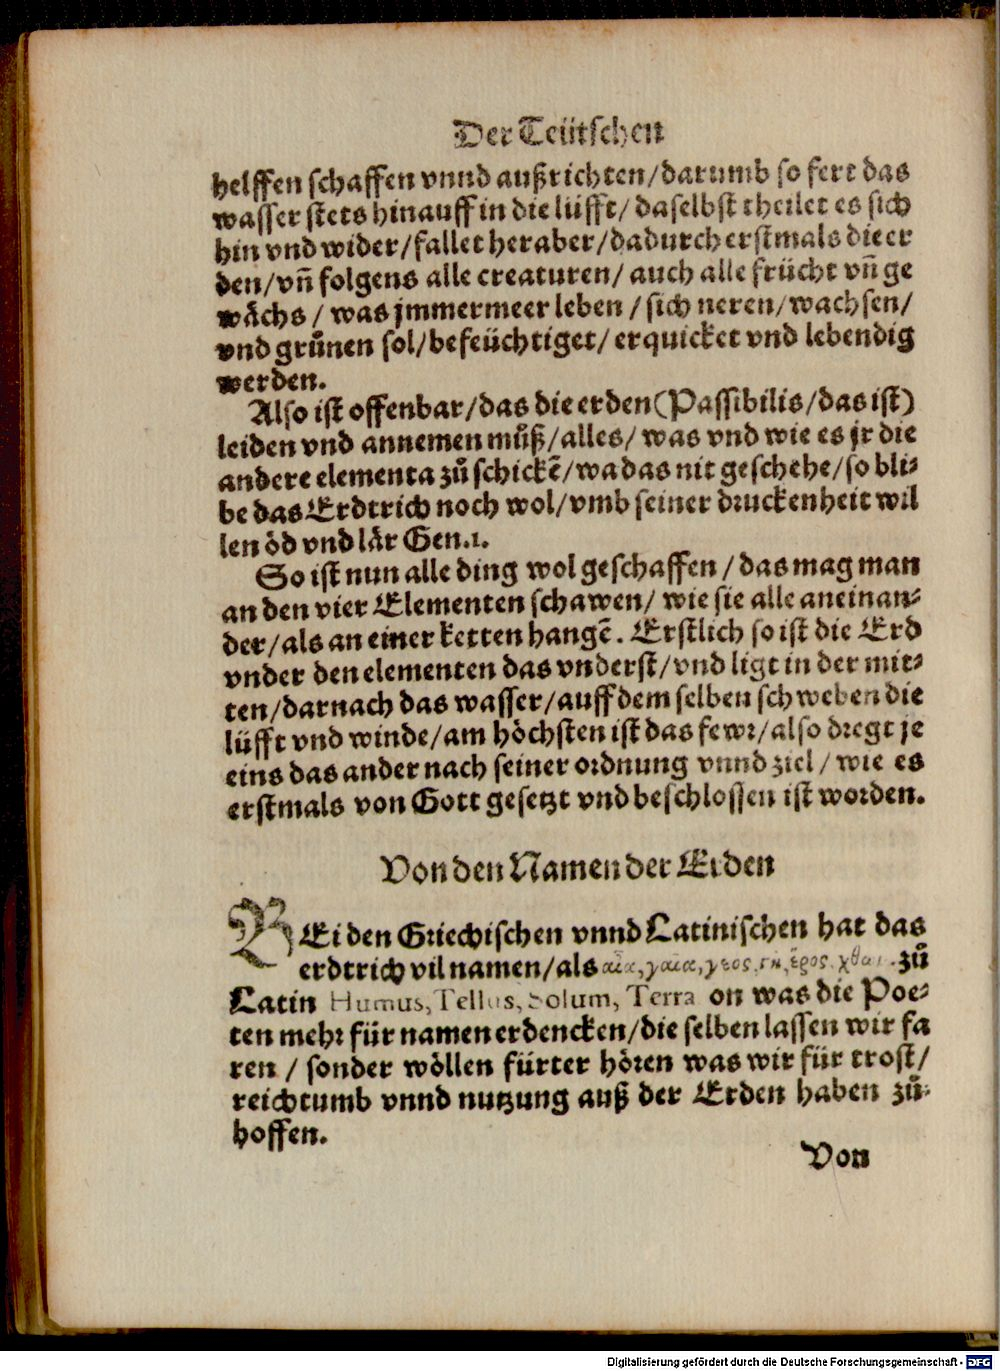 Der Teütschen
helffen schaffen vnnd außrichten/darumb so fert das
wasser stets hinauff in die lüfft/ daselbst theilet es sich
hin vnd wider/fallet heraber/dadurch erstmals die er
den/vñ folgens alle creaturen/ auch alle frücht vñ ge
wächs / was jmmermeer leben / sich neren/wachsen/
vnd grůnen sol/befeüchtiget/ erquicket vnd lebendig
werden.
Also ist offenbar/das die erden(Passibilis/das ist)
leiden vnd annemen můß/alles/ was vnd wie es jr die
andere elementa zů schickẽ/wa das nit geschehe/so bli-
be das Erdtrich noch wol/vmb seiner druckenheit wil
len öd vnd lär Gen.1.
So ist nun alle ding wol geschaffen / das mag man
an den vier Elementen schawen/ wie sie alle aneinan-
der/als an einer ketten hangẽ. Erstlich so ist die Erd
vnder den elementen das vnderst/vnd ligt in der mit-
ten/darnach das wasser/auff dem selben schweben die
lüfft vnd winde/am höchsten ist das fewr/also dregt je
eins das ander nach seiner ordnung vnnd ziel / wie es
erstmals von Gott gesetzt vnd beschlossen ist worden.
Von den Namen der Erden
BEi den Griechischen vnnd Latinischen hat das
erdtrich vil namen/als αἶα, γαῖα, γεος, γῆ, zů
Latin Humus, Tellus, Solum, Terra on was die Poe-
ten mehr für namen erdencken/die selben lassen wir fa
ren / sonder wöllen fürter hören was wir für trost/
reichtumb vnnd nutzung auß der Erden haben zů-
hoffen.
Von
Digitalisierung gefördert durch die Deutsche Forschungsgemeinschaft - DFG